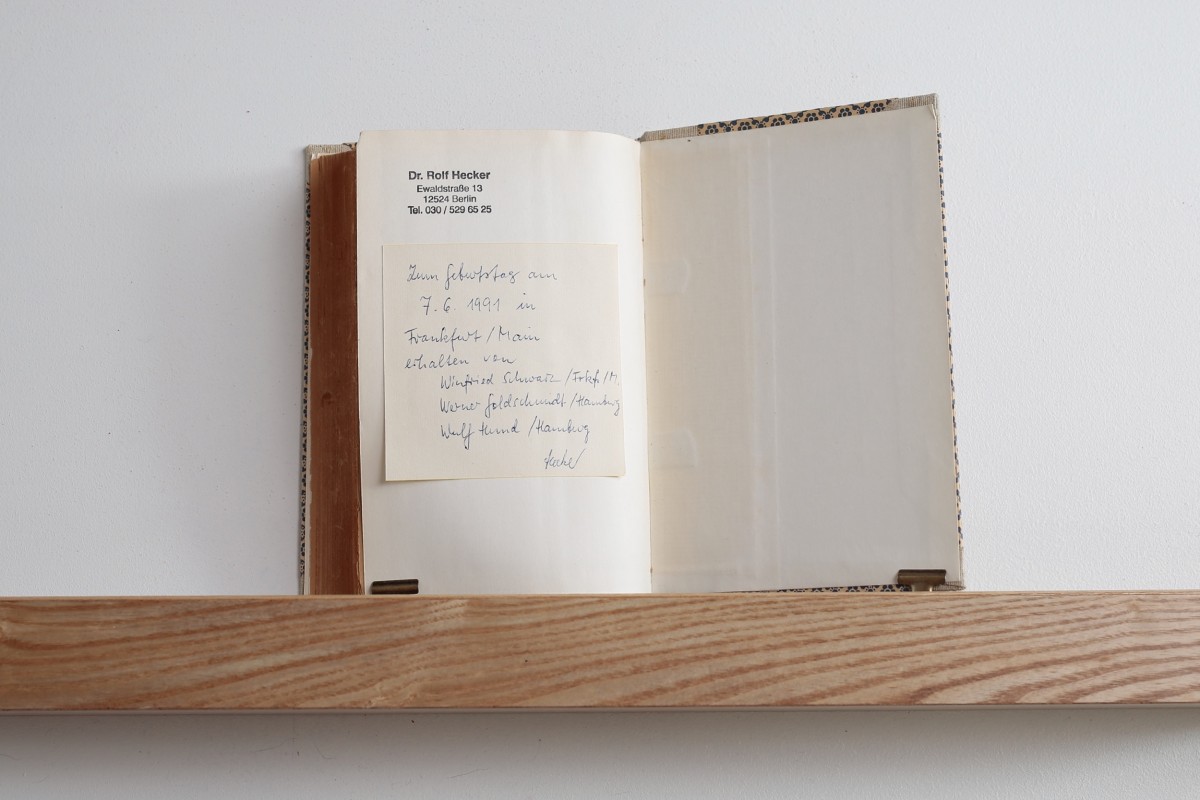 Dr. Rolf Hecker
Ewaldstraße 13
12524 Berlin
Tel. 030 / 529 65 25
Zum Geburtstag am
7. 6. 1991 in
Frankfurt / Main
erhalten von
Winfried Schwarz / Frkf. / M.
Werner Goldschmidt / Hamburg
Wulf Hund / Hamburg
Hecker